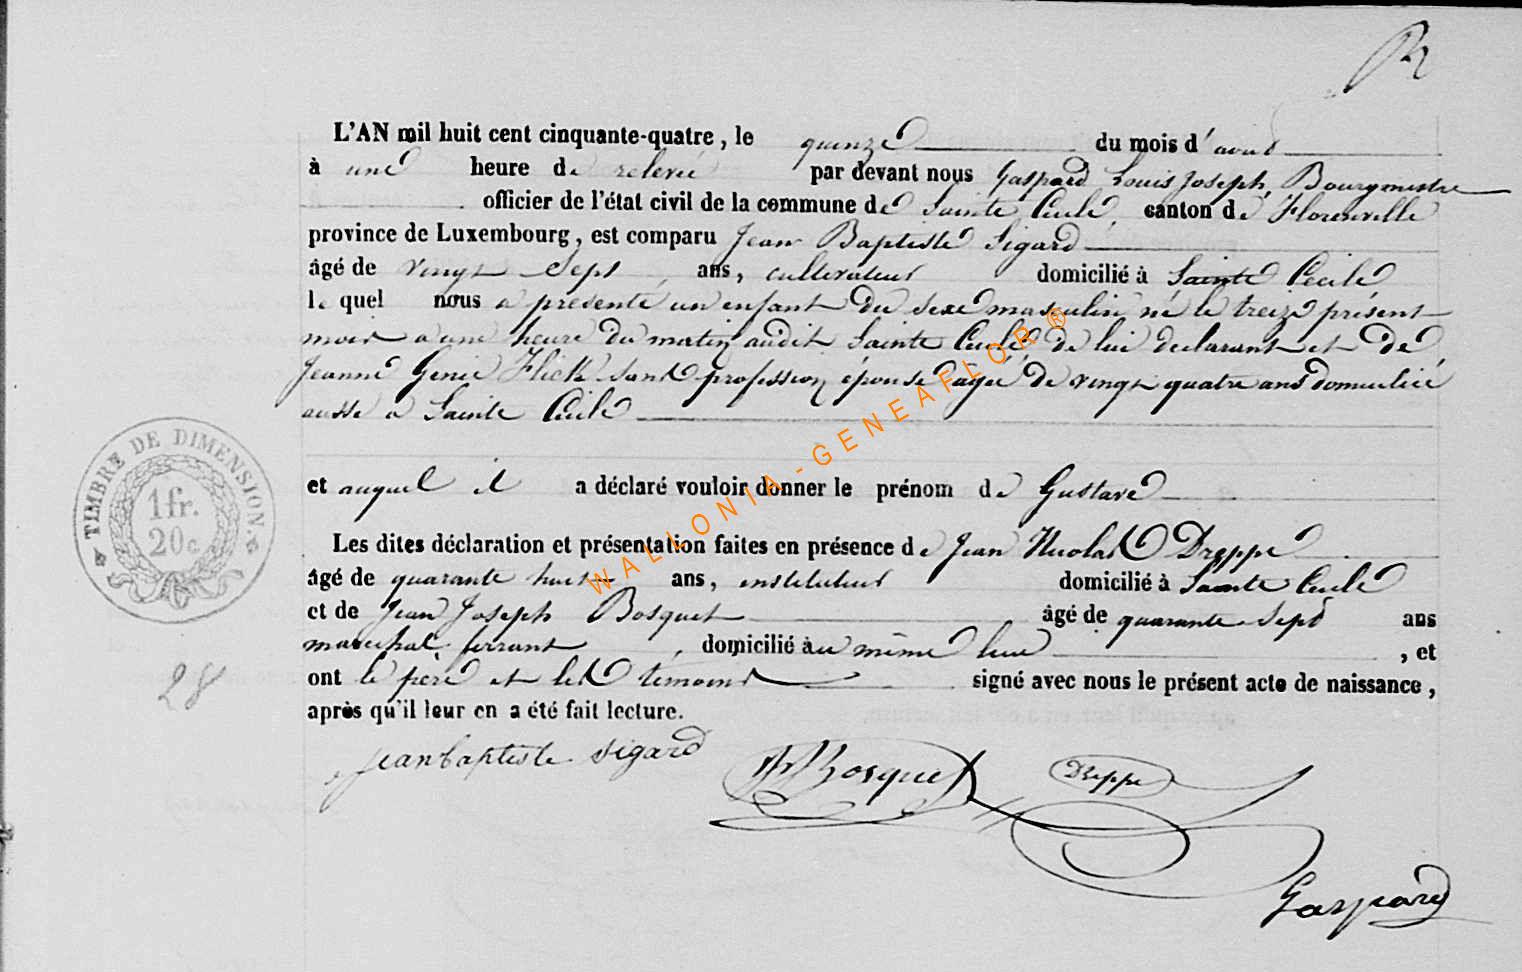 L'AN mil huit cent cinquante-quatre, le quinze du mois d'aout
à une heure de relevée par devant nous Gaspard Louis Joseph, Bourgmestre
officier de l'état civil de la commune de Sainte Cecile, canton de Florenville
province de Luxembourg, est comparu Jean Baptiste Sigard
âgé de vingt Sept ans, cultivateur domicilié à Sainte Cecile
le quel nous a présenté un enfant du sexe masculin né le treize présent
mois a une heure du matin audit Sainte Cecile de lui declarant et de
Jeanne Genie Flick sans profession épouse agée de vingt quatre ans domicilié
aussi a Sainte Cecile
et auquel il a déclaré vouloir donner le prénom de Gustave
Les dites déclaration et présentation faites en présence de Jean Nicolas Dreppe
âgé de quarante huit ans, instituteur domicilié à Sainte Cecile
et de Jean Joseph Bosquet âgé de quarante Sept ans
marechal ferrant, domicilié au même lieu, et
ont le père et les témoins signé avec nous le présent acte de naissance,
après qu'il leur en a été fait lecture.
TIMBRE DE DIMENSION.
1 fr.
20 c
28
jean baptiste sigard
Bosquet
Dreppe
Gaspard
WALLONIA-GENEAFLOR®